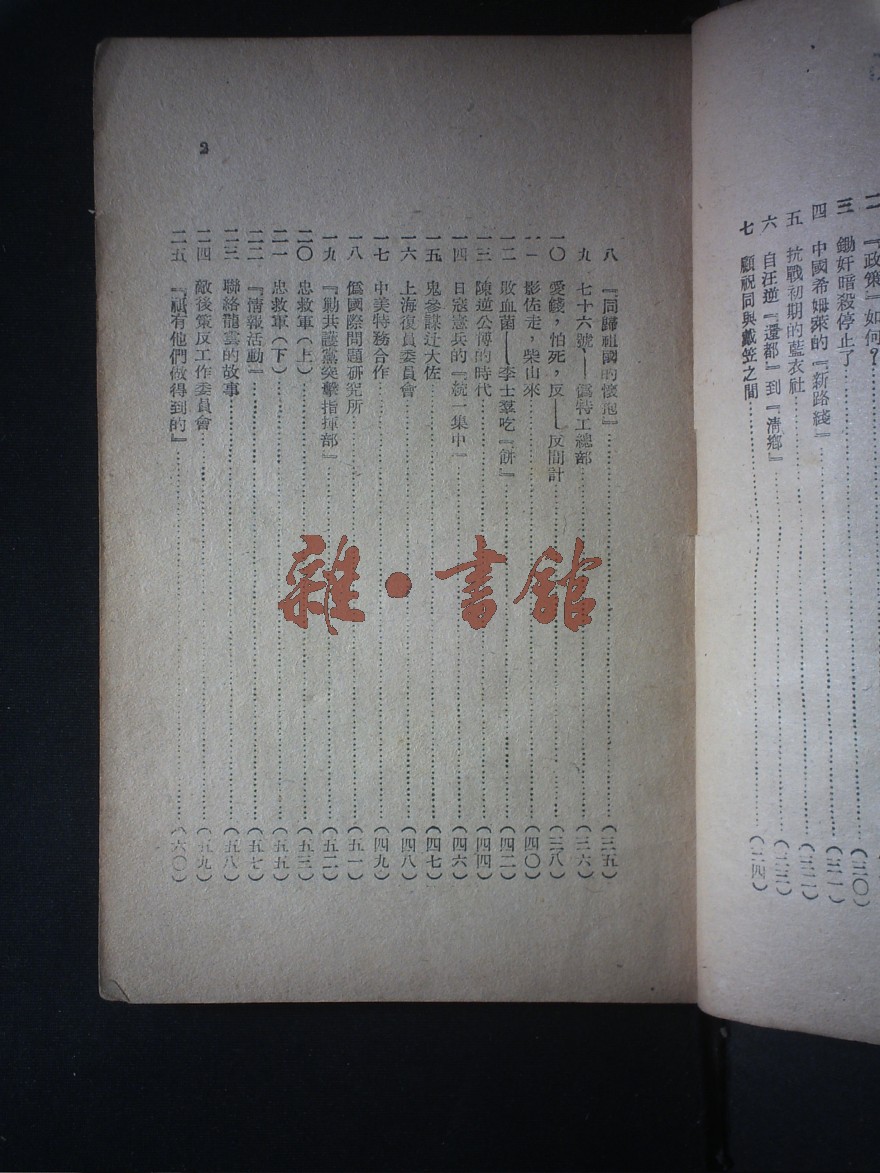 二 『政策』如何？……（二〇）
三 鋤奸暗殺停止了……（二一）
四 中國希姆萊的『新路綫』……（二二）
五 抗戰初期的藍衣社
六 自汪逆『還都』到『清鄉』……（二三）
七 顧祝同與戴笠之間……（二四）
2
八 『同歸祖國的懷抱』……（三五）
九 七十六號、——僞特工總部……（三六）
一〇 愛錢，怕死，反——反間計……（三八）
一一 影佐走，柴山來……（四〇）
一二 敗血菌——李士羣吃『餅』……（四二）
一三 陳逆公博的時代……（四四）
一四 日寇憲兵的『統一集中』……（四六）
一五 鬼參謀辻大佐……（四七）
一六 上海復員委員會……（四八）
一七 中美特務合作……（四九）
一八 僞國際問題研究所……（五一）
一九 『勦共護黨突擊指揮部』……（五二）
二〇 忠救軍（上）……（五三）
二一 忠救軍（下）……（五五）
二二 『情報活動』……（五七）
二三 聯絡龍雲的故事……（五八）
二四 敵後策反工作委員會……（五九）
二五 『祇有他們做得到的』……（六〇）
雜·書館